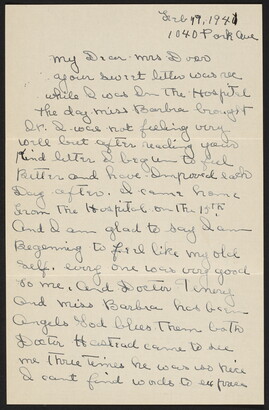 Feb 19, 1941
1040 Park Ave
My Dear Mrs
your sweet letter was re
while I was In the Hospital
the day Miss Barbra brought
It. I was not feeling very
well but after reading your
Kind letter I begun to feel
Better and have Improved each
Day after. I came home
from the Hospital on the 15th
And I am glad to say I am
Beginning to feel like my old
self. every one was very good
to me, And Doctor
and Miss Barbra has been
Angels God bless them both
Doctor came to see
me three times he was so nice
I cant find words to express